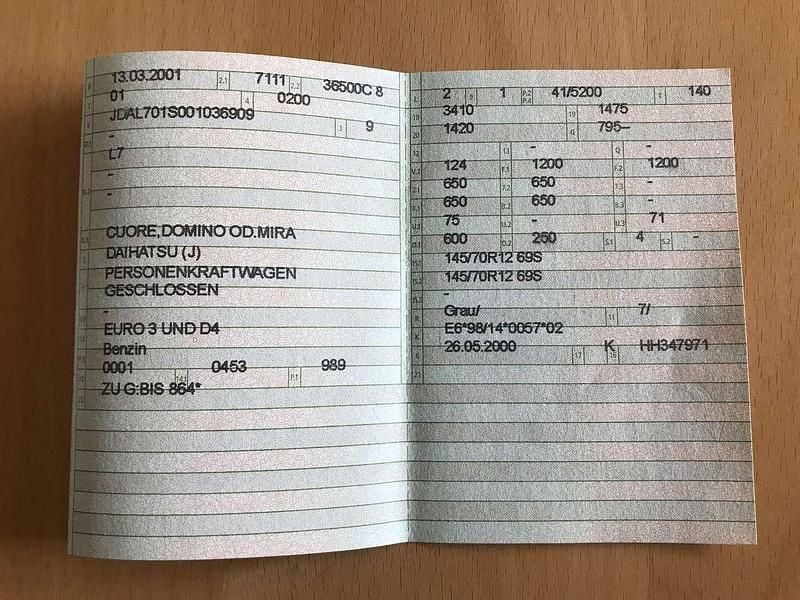 B 13.03.2001 2.1 7111 2.2 36500C 8
J 01 4 0200
E JDAL701S001036909 3 9
-
L7
-
D.2 -
CUORE,DOMINO OD.MIRA
DAIHATSU (J)
PERSONENKRAFTWAGEN
GESCHLOSSEN
-
EURO 3 UND D4
Benzin
0001 14.1 0453 P.1 989
ZU G:BIS 864*
L 2 9 1 P.2 P.4 41/5200 T 140
18 3410 19 1475
20 1420 G 795--
12 - 13 - Q -
V.7 124 F.1 1200 F.2 1200
7.1 650 7.2 650 7.3 -
8.1 650 8.2 650 8.3 -
U.1 75 U.2 - U.3 71
O.1 600 O.2 250 S.1 4 S.2 -
15.1 145/70R12 69S
15.2 145/70R12 69S
15.3 -
R Grau/ 11 7/
K E6*98/14*0057*02
6 26.05.2000 17 K 16 HH347971
21